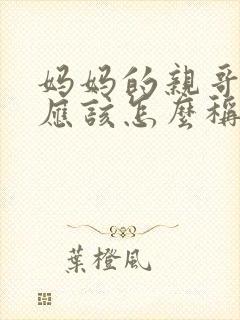 妈妈的親哥
應該怎麼稱
葉橙風